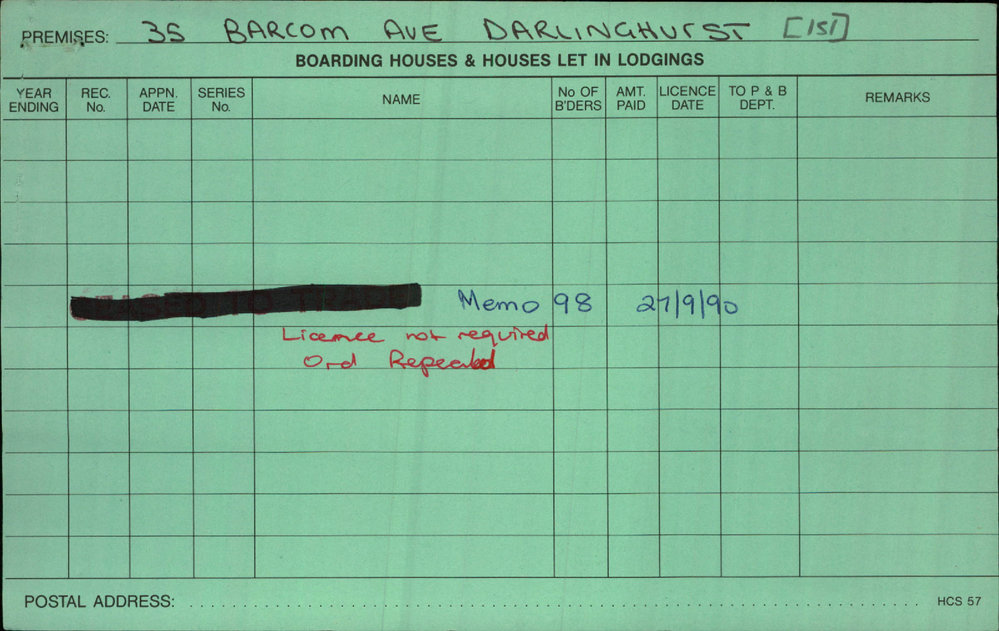 PREMISES: 35 BARCOM AVE DARLINGHURST [151]
BOARDING HOUSES & HOUSES LET IN LODGINGS
YEAR ENDING REC. No. APPN. DATE SERIES No. NAME No OF B'DERS AMT. PAID LICENCE DATE TO P & B DEPT. REMARKS
Memo 98 27/9/90
Licence not required
Ord Repealed
POSTAL ADDRESS: HCS 57